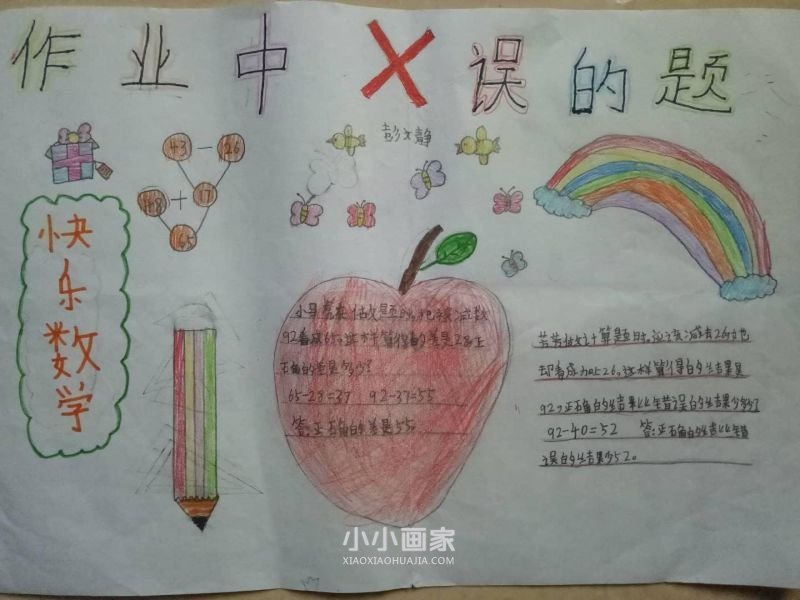 作业中×误的题
彭文静
43 - 26
48 + 17
65
快乐数学
小马虎在做题时,把被减数
92看成65,这于算得的差是28,正
正确的差是多少?
65-28=37 92-37=55
答:正确的差是55。
芳芳做计算题时,应该减去26,她
却看成加上26,这样算得的结果是
92,正确的结果比错误的结果少多少
92-40=52 答:正确的结果比错
误的结果少52。
小小画家
XIAOXIAOHUAJIA.COM